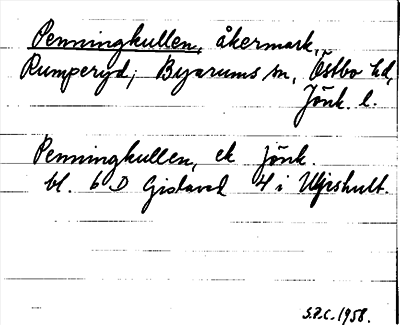 Penningkullen, åkermark,
Rumperyd; Byarums sn, Östbo hd,
Jönk. l.
Penningkullen, ek Jönk.
bl. 6 D Gislaved 4 i
S.P.C. 1958.